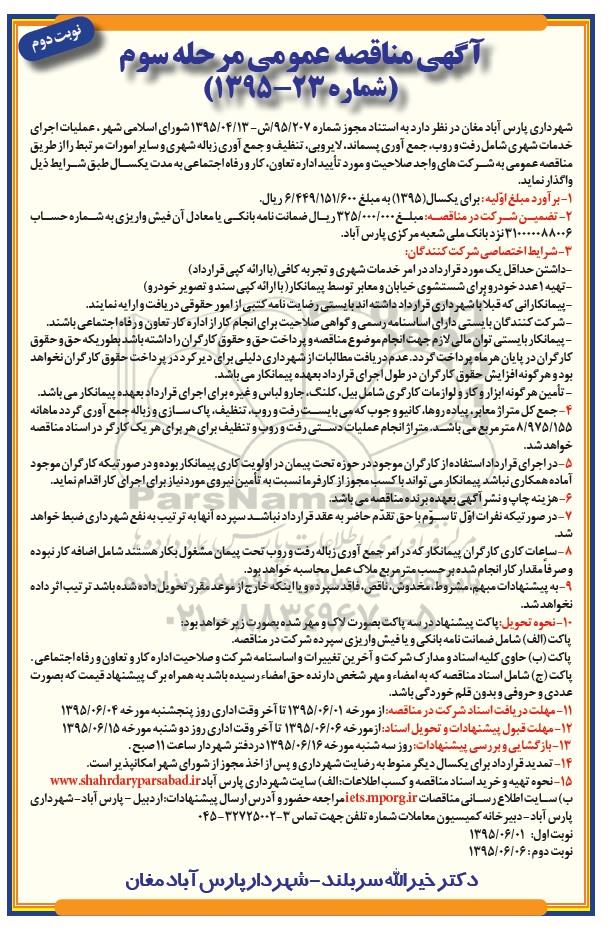 نوبت دوم
آگهی مناقصه عمومی مرحله سوم
(شماره ۲۳-۱۳۹۵)
شهرداری پارس آباد مغان در نظر دارد به استناد مجوز شماره ۹۵/۲۰۷/ش- ۱۳۹۵/۰۴/۱۳ شورای اسلامی شهر، عملیات اجرای
خدمات شهری شامل رفت و روب، جمع آوری پسماند، لایروبی، تنظیف و جمع آوری زباله شهری و سایر امورات مرتبط را از طریق
مناقصه عمومی به شرکت های واجد صلاحیت و مورد تأیید اداره تعاون، کار و رفاه اجتماعی به مدت یکسال طبق شرایط ذیل
واگذار نماید.
۱- برآورد مبلغ اوّلیه: برای یکسال (۱۳۹۵) به مبلغ ۶/۴۴۹/۱۵۱/۶۰۰ ریال.
۲- تضمین شرکت در مناقصه: مبلغ ۳۲۵/۰۰۰/۰۰۰ ریال ضمانت نامه بانکی یا معادل آن فیش واریزی به شماره حساب
۳۱۰۰۰۰۰۸۸۰۰۶ نزد بانک ملی شعبه مرکزی پارس آباد.
۳- شرایط اختصاصی شرکت کنندگان:
-داشتن حداقل یک مورد قرارداد در امر خدمات شهری و تجربه کافی (با ارائه کپی قرارداد)
-تهیه ۱ عدد خودرو برای شستشوی خیابان و معابر توسط پیمانکار (با ارائه کپی سند و تصویر خودرو)
-پیمانکارانی که قبلاً با شهرداری قرارداد داشته اند بایستی رضایت نامه کتبی از امور حقوقی دریافت و ارایه نمایند.
-شرکت کنندگان بایستی دارای اساسنامه رسمی و گواهی صلاحیت برای انجام کار از اداره کار تعاون و رفاه اجتماعی باشند.
- پیمانکار بایستی توان مالی لازم جهت انجام موضوع مناقصه و پرداخت حق و حقوق کارگران را داشته باشد بطوریکه حق و حقوق
کارگران در پایان هر ماه پرداخت گردد. عدم دریافت مطالبات از شهرداری دلیلی برای دیر کرد در پرداخت حقوق کارگران نخواهد
بود و هرگونه افزایش حقوق کارگران در طول اجرای قرارداد بعهده پیمانکار می باشد.
- تأمین هرگونه ابزار و کار و لوازمات کارگری شامل بیل، کلنگ، جارو لباس و غیره برای اجرای قرارداد بعهده پیمانکار می باشد.
۴- جمع کل متراژ معابر، پیاده روها، کانیو و جوب که می بایست رفت و روب، تنظیف، پاک سازی و زباله جمع آوری گردد ماهانه
۸/۹۷۵/۱۵۵ متر مربع می باشد. متراژ انجام عملیات دستی رفت و روب و تنظیف برای هر برای هر یک کارگر در اسناد مناقصه
خواهد شد.
۵- در اجرای قرارداد استفاده از کارگران موجود در حوزه تحت پیمان در اولویت کاری پیمانکار بوده و در صورتیکه کارگران موجود
آماده همکاری نباشد پیمانکار می تواند با کسب مجوز از کارفرما نسبت به تأمین نیروی مورد نیاز برای اجرای کار اقدام نماید.
۶- هزینه چاپ و نشر آگهی بعهده برنده مناقصه می باشد.
۷- در صورتیکه نفرات اوّل تا سوّم با حق تقدّم حاضر به عقد قرارداد نباشد سپرده آنها به ترتیب به نفع شهرداری ضبط خواهد
شد.
۸- ساعات کاری کارگران پیمانکار که در امر جمع آوری زباله رفت و روب تحت پیمان مشغول بکار هستند شامل اضافه کار نبوده
و صرفاً مقدار کار انجام شده بر حسب متر مربع ملاک عمل محاسبه خواهد بود.
۹- به پیشنهادات مبهم، مشروط، مخدوش، ناقص، فاقد سپرده و یا اینکه خارج از موعد مقرر تحویل داده شده باشد ترتیب اثر داده
نخواهد شد.
۱۰- نحوه تحویل: پاکت پیشنهاد در سه پاکت بصورت لاک و مهر شده بصورت زیر خواهد بود:
پاکت (الف) شامل ضمانت نامه بانکی و یا فیش واریزی سپرده شرکت در مناقصه.
پاکت (ب) حاوی کلیه اسناد و مدارک شرکت و آخرین تغییرات و اساسنامه شرکت و صلاحیت اداره کار و تعاون و رفاه اجتماعی.
پاکت (ج) شامل اسناد مناقصه که به امضاء و مهر شخص دارنده حق امضاء رسیده باشد به همراه برگ پیشنهاد قیمت که بصورت
عددی و حروفی و بدون قلم خوردگی باشد.
۱۱- مهلت دریافت اسناد شرکت در مناقصه: از مورخه ۱۳۹۵/۰۶/۰۱ تا آخر وقت اداری روز پنجشنبه مورخه ۱۳۹۵/۰۶/۰۴
۱۲- مهلت قبول پیشنهادات و تحویل اسناد: از مورخه ۱۳۹۵/۰۶/۰۶ تا آخر وقت اداری روز دو شنبه مورخه ۱۳۹۵/۰۶/۱۵
۱۳- بازگشایی و بررسی پیشنهادات: روز سه شنبه مورخه ۱۳۹۵/۰۶/۱۶ در دفتر شهردار ساعت ۱۱ صبح.
۱۴- تمدید قرارداد برای یکسال دیگر منوط به رضایت شهرداری و پس از اخذ مجوز از شورای شهر امکانپذیر است.
۱۵- نحوه تهیه و خرید اسناد مناقصه و کسب اطلاعات: الف) سایت شهرداری پارس آباد www.shahrdaryparsabad.ir
ب) سایت اطلاع رسانی مناقصات iets.mporg.ir مراجعه حضور و آدرس ارسال پیشنهادات: اردبیل - پارس آباد - شهرداری
پارس آباد - دبیرخانه کمیسیون معاملات شماره تلفن جهت تماس ۳-۳۲۷۲۵۰۰۲-۰۴۵
نوبت اول: ۱۳۹۵/۰۶/۰۱
نوبت دوم: ۱۳۹۵/۰۶/۰۶
دکتر خیرالله سربلند - شهردار پارس آباد مغان
ParsNamad
۰۲۱-۸۸۳۴۹۶۷۰-۵